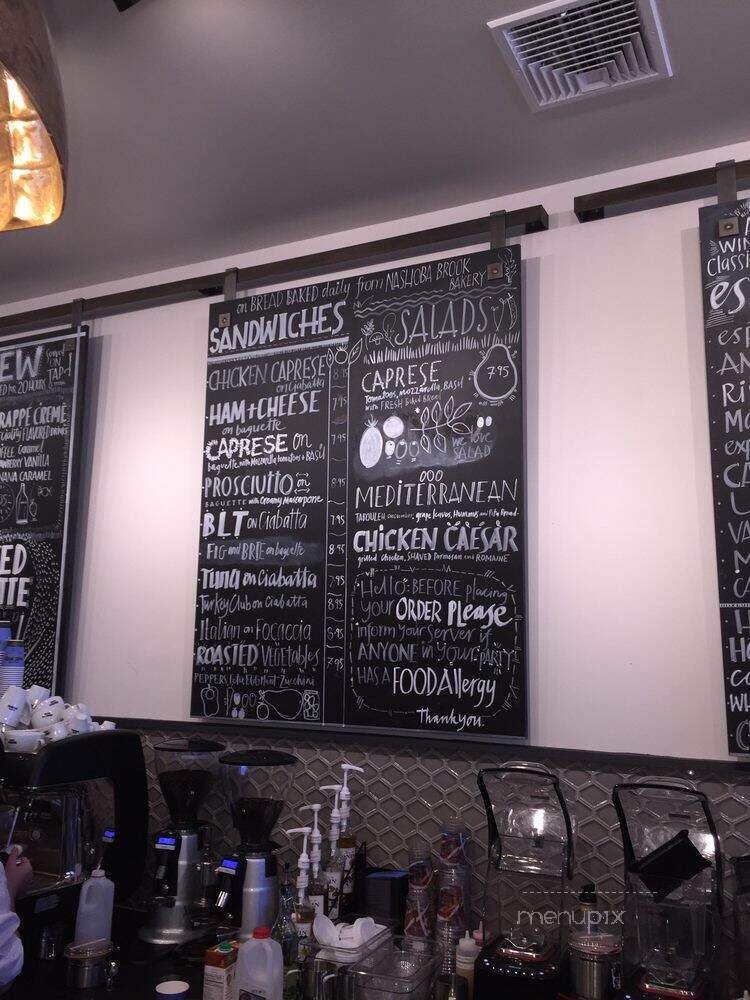 on BREAD BAKED daily from NASHOBA BROOK
BAKERY
SANDWICHES
CHICKEN CAPRESE
on Ciabatta
HAM+CHEESE
7.95
on baguette
CAPRESE on
7.95
baguette with Mozzarella tomatoes + BASIL
PROSCIUTTO on
8.95
BAGUETTE with Creamy Mascarpone
BLT on Ciabatta
7.95
FIG and BRIE on baguette
8.95
TUNA on Ciabatta
7.95
Turkey Club on Ciabatta
8.95
Italian on Focaccia
ROASTED VEGETABLES
7.95
PEPPERS EGGPLANT Zucchini
SALADS
CAPRESE
7.95
Tomatoes, mozzarella, Basil
with FRESH Baked Bread
we love
SALAD
MEDITERRANEAN
TABOULEH, cucumbers, grape leaves, Hummus and Pita Bread
CHICKEN CAESAR
grilled Chicken, SHAVED Parmesan and ROMAINE
Hello: BEFORE placing
your ORDER Please
inform your server if
ANYONE in your PARTY
HAS A FOOD Allergy
Thank you.
EW
Served
ON
TAP!
FOR 20 HOURS
RAPPE CREME
FLAVORED
CARAMEL
VANILLA
CARAMEL
Classi
es
menupix